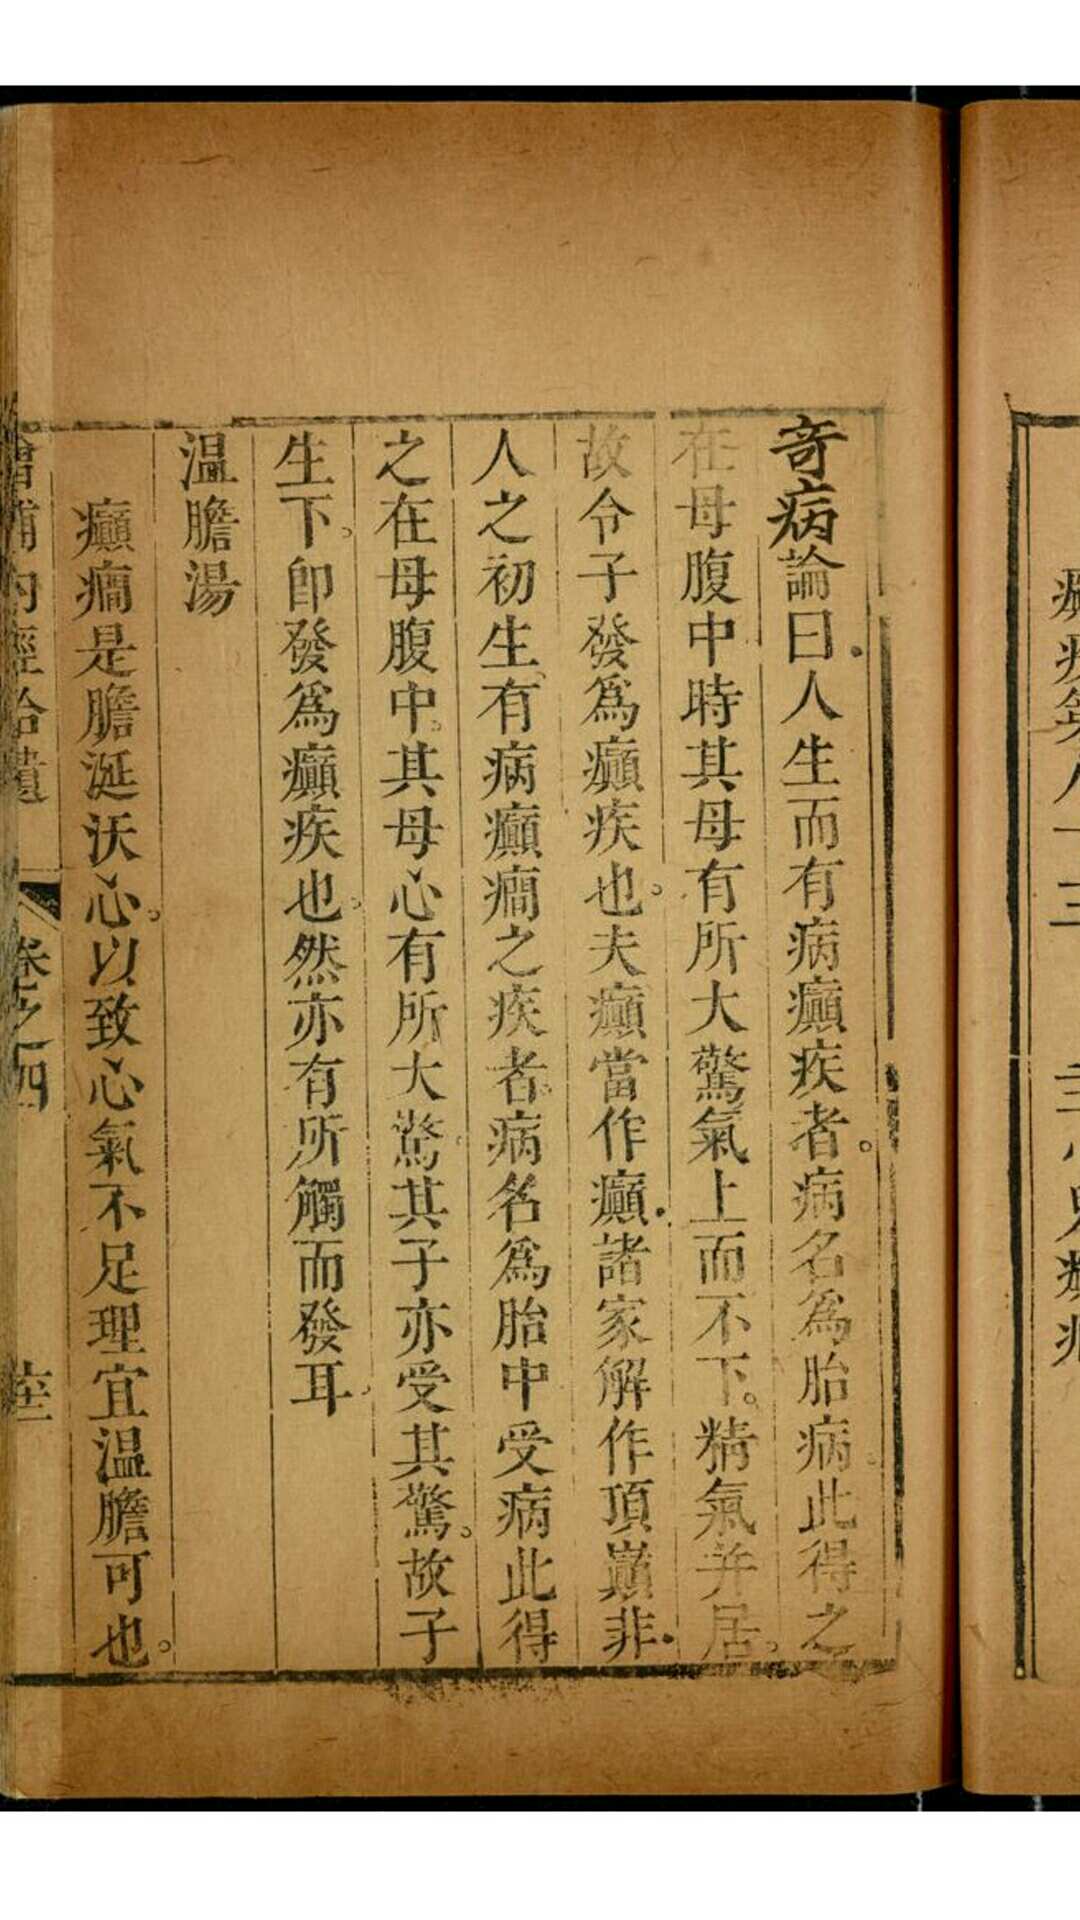 奇病論曰人生而有病癲疾者病名爲胎病此得之
在母腹中時其母有所大驚氣上而不下精氣并居
故令子發爲癲疾也夫癲當作癲諸家解作頂巔非
人之初生有病癲癇之疾者病名爲胎中受病此得
之在母腹中其母心有所大驚其子亦受其驚故子
生下卽發爲癲疾也然亦有所觸而發耳
温膽湯
癲癇是膽涎沃心以致心氣不足理宜温膽可也
增補內經拾遺
卷之四